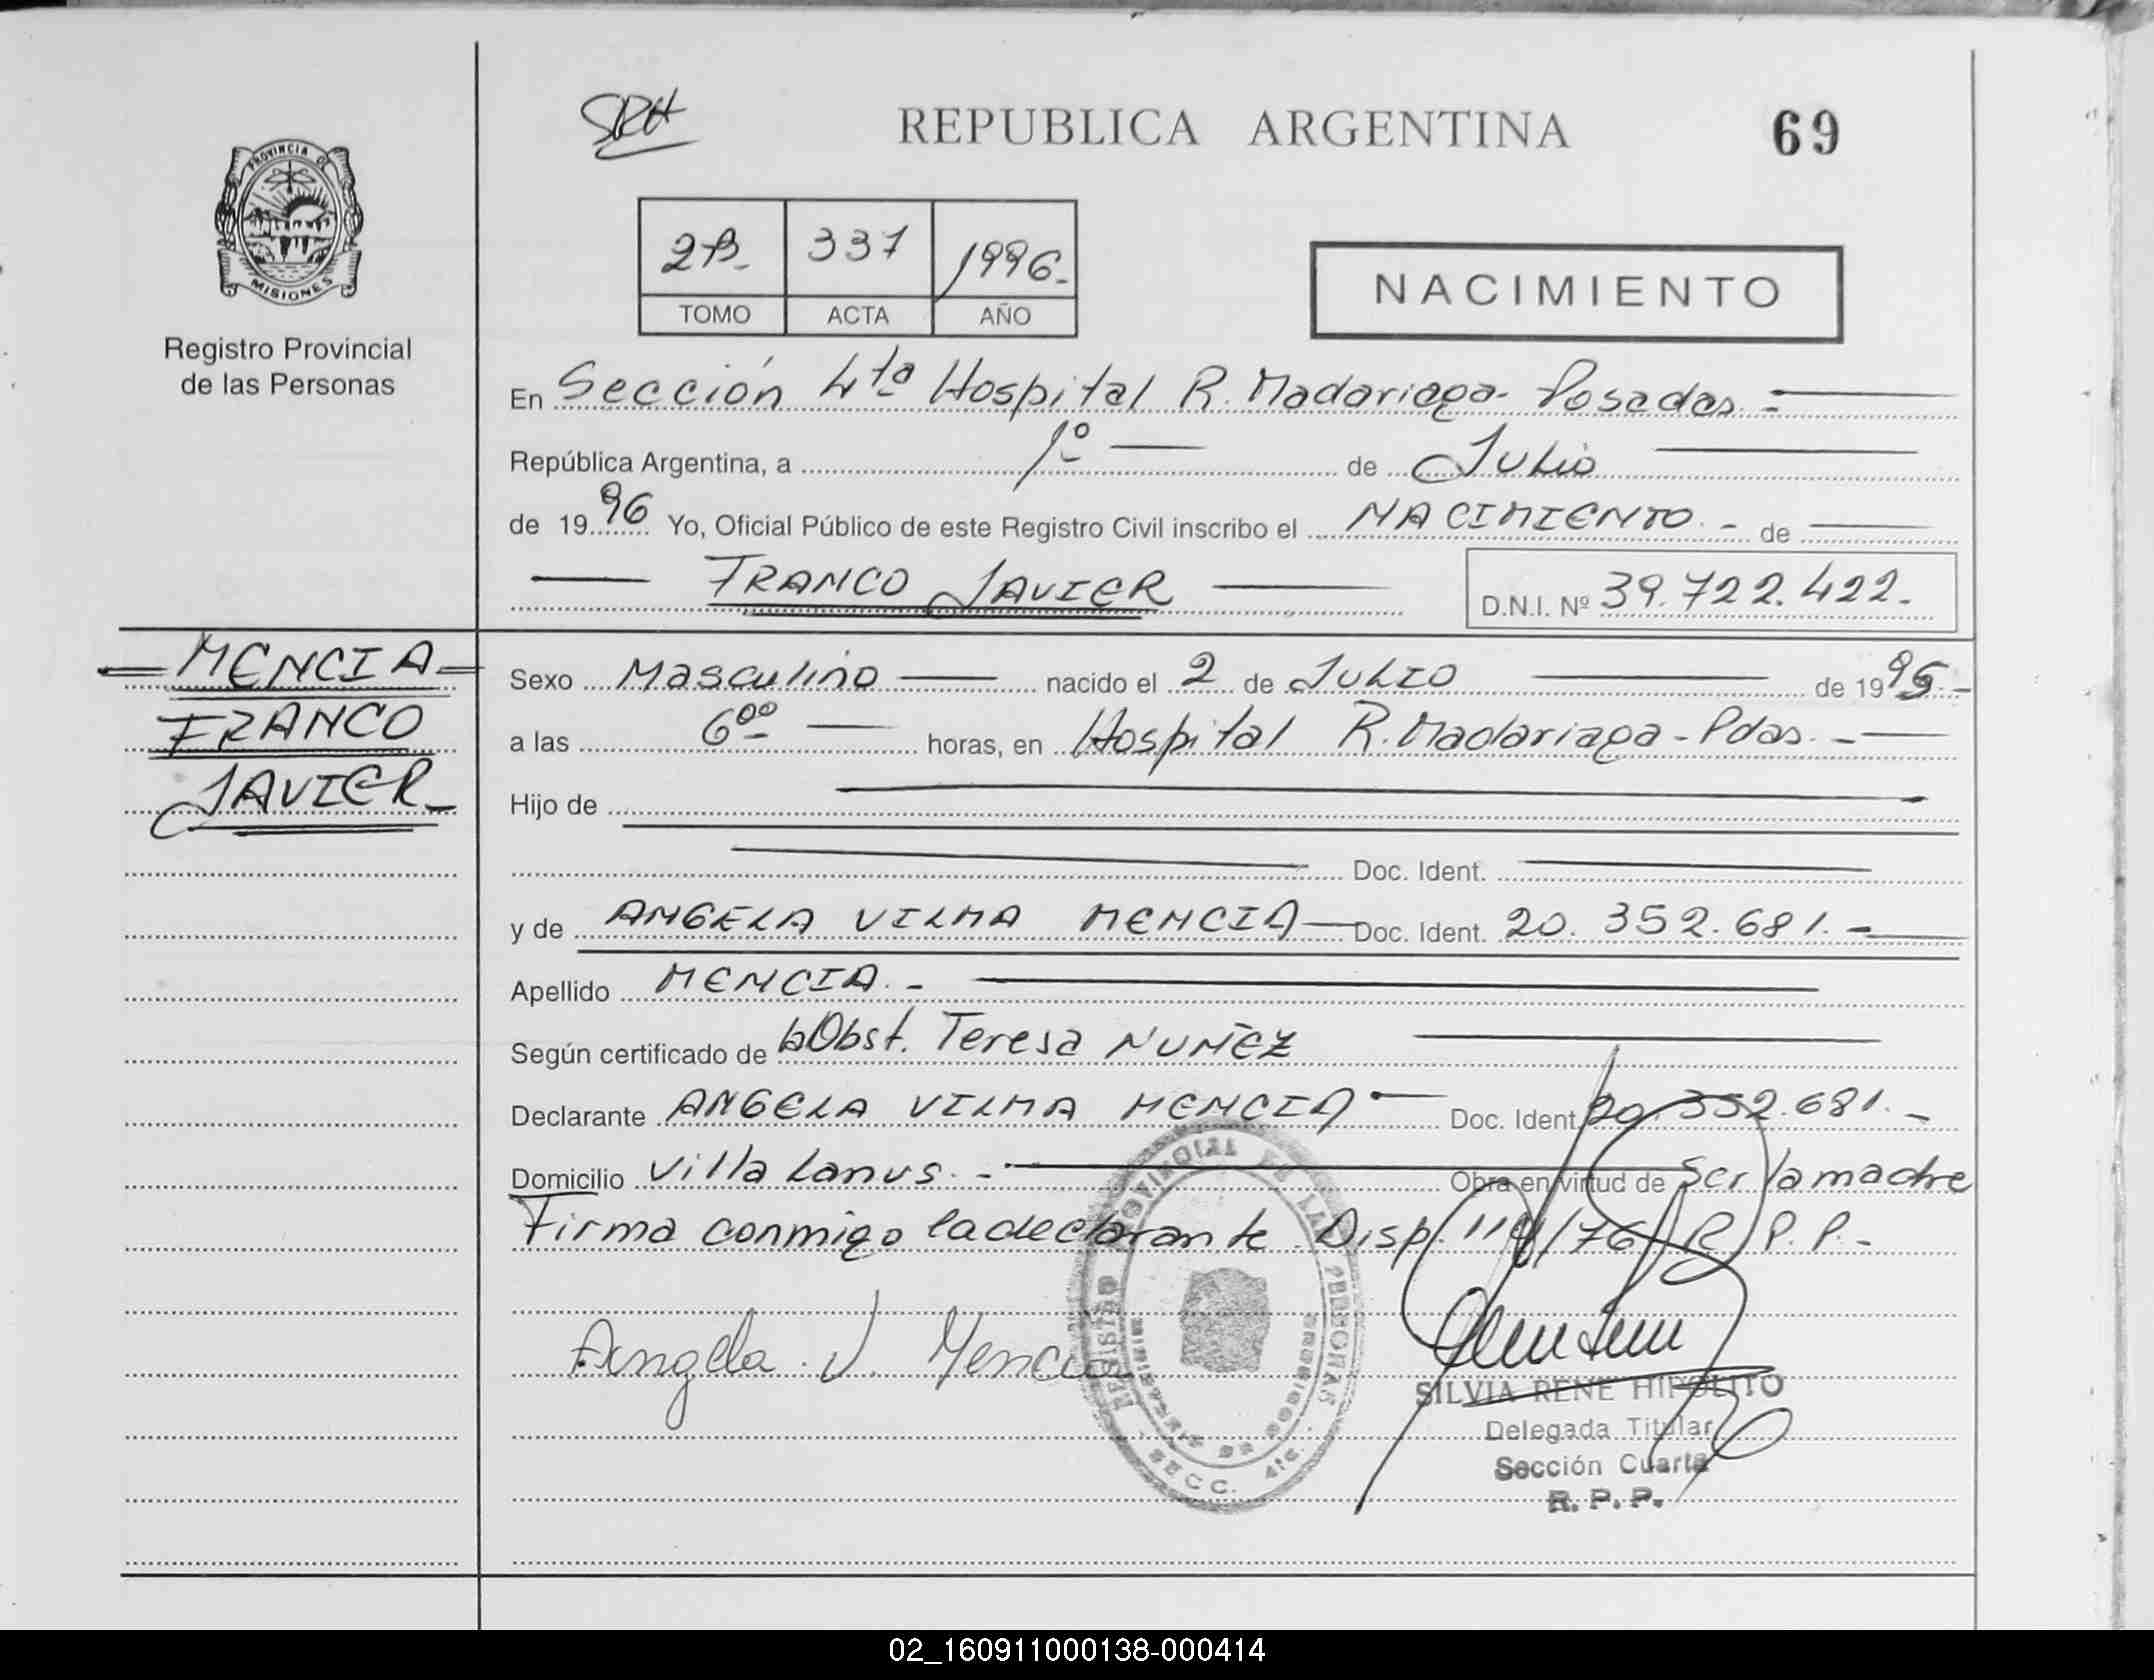 SRH
REPUBLICA ARGENTINA
69
PROVINCIA D
MISIONES
Registro Provincial
de las Personas
2B- 337 1996.-
TOMO ACTA AÑO
NACIMIENTO
En Sección 4ta Hospital R. Madariaga- Posadas.-
República Argentina, a 1º de Julio
de 1996 Yo, Oficial Público de este Registro Civil inscribo el NACIMIENTO.- de
FRANCO JAVIER
D.N.I. Nº 39.722.422.-
MENCIA
FRANCO
JAVIER-
Sexo Masculino nacido el 2 de JULIO de 1995.-
a las 6⁰⁰ horas, en Hospital R. Madariaga- Pdas.-
Hijo de
Doc. Ident.
y de ANGELA VILMA MENCIA Doc. Ident. 20.352.681.-
Apellido MENCIA.-
Según certificado de Obst. Teresa NUÑEZ
Declarante ANGELA VILMA MENCIA Doc. Ident. 20.352.681.-
Domicilio Villa Lanus.- Obra en virtud de Ser la madre
Firma conmigo la declarante. Disp. 114/76 R.P.P.-
Angela V. Mencia
REGISTRO PROVINCIAL DE LAS PERSONAS
SECC. 4ta.
SILVIA RENE HIPOLITO
Delegada Titular
Sección Cuarta
R. P. P.
02_160911000138-000414